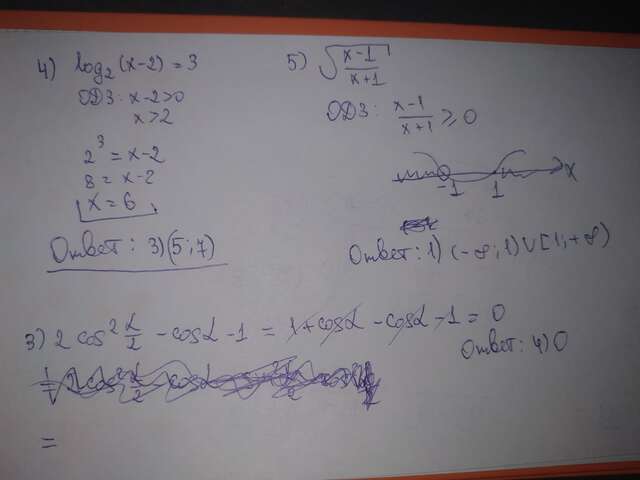 4) log₂(x-2) = 3
ОДЗ: x-2>0
x>2
2³ = x-2
8 = x-2
x = 6
Ответ: 3)(5;7)
5) √((x-1)/(x+1))
ОДЗ: (x-1)/(x+1) ≥ 0
-1 1 x
Ответ: 1) (-∞;1)∪[1;+∞)
3) 2 cos² α/2 - cosα - 1 = 1 + cosα - cosα - 1 = 0
Ответ: 4) 0
=